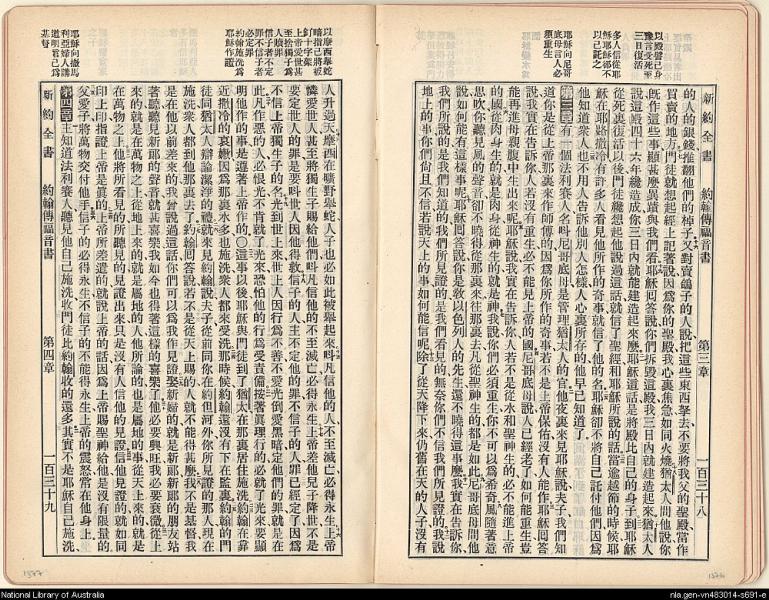 新約全書 約翰傳福音書 第三章 一百三十八
以殿譬己身
豫言受死至
三日復活
多人信從耶
穌耶穌卻不
以己託之
耶穌向尼哥
底母言人必
須重生
的人的銀錢推翻他們的桌子又對賣鴿子的人說把這些東西拏去不要將我父的聖殿當作
買賣的地方門徒就想起經上記著說因為你的聖殿我心裏焦急如同火燒猶太人問他說你
既作這些事顯甚麼異蹟與我們看耶穌回答說你們拆毀這殿我三日內就建造起來猶太人
說這殿四十六年纔造成你三日內就能建造起來麼耶穌這話是將殿比自己的身子到耶穌
從死裏復活以後門徒纔想起他說過這話就信了聖經和耶穌所說的話當逾越節的時候耶
穌在耶路撒冷有許多人看見他所作的奇事就信了他的名耶穌卻不將自己託付他們因為
他知道眾人也不用人告訴他別人怎樣人心裏所存的他早已知道了
第三章 有一個法利賽人名叫尼哥底母是管理猶太人的官他夜裏來見耶穌說夫子我們知
道你是從上帝那裏來作師傅的因為你所作的奇事若不是上帝保佑沒有人能作耶穌回答
說我實在告訴你人若沒有重生必不能見上帝的國尼哥底母說人已經老了如何能重生豈
能再進母親腹中生出來呢耶穌說我實在告訴你人若不是從水和聖神生的必不能進上帝
的國從肉身生的就是肉身從神生的就是神我說你們必須重生你不可以為希奇風隨著意
思吹你聽見風的聲音卻不曉得從那裏來往那裏去凡從聖神生的都是如此尼哥底母問他
說如何能有這樣事呢耶穌回答說你是教以色列人的先生還不曉得這事麼我實在告訴你
我們所說的是我們知道的我們所見證的是我們看見的無奈你們不信我們所見證的我說
地上的事你們尚且不信若說天上的事如何能信呢除了從天降下來仍舊在天的人子沒有
以摩西舉蛇
暗指己將被
釘十字架
上帝愛世甚
至捨獨子為
人贖罪
信子者不定
罪不信子者
必定罪
約翰施洗為
耶穌作證
耶穌向撒馬
利亞婦人講
道明言己為
基督
人升過天摩西在曠野舉蛇人子也必如此被舉起來叫凡信他的人不至滅亡必得永生上帝
憐愛世人甚至將獨生子賜給他們叫凡信他的不至滅亡必得永生上帝差他兒子降世不是
要定世人的罪是要叫世人因他得救信子的人主不定他的罪不信子的人罪已經定了因為
不信上帝獨生子的名光到世上來世上人因行為不善不愛光倒愛黑暗定他們的罪就是在
此凡作惡的人必恨光不肯就了光來恐怕他的行為受責備按著真理行的必就了光來要顯
明他作的事是遵著上帝作的〇這事以後耶穌與門徒到了猶太在那裏居住施洗約翰在靠
近撒冷的哀嫩因為那裏水多也施洗眾人都來受洗那時候約翰還沒有下在監裏約翰的門
徒同猶太人辯論潔淨的禮就來見約翰說夫子從前同你在約但河外你所見證的那人現在
施洗眾人都到他那裏去了約翰回答說若不是從天上賜的人就不能得甚麼我不是基督我
是在他以前差來的我曾說過這話你們可以為我作見證娶新婦的就是新郎新郎的朋友站
著聽聽見新郎的聲音就甚喜樂我如今也得著這樣的喜樂了他必要興旺我必要衰微從上
來的就是在萬物之上從地上來的就是屬地的人他所論的也是屬地的事從天上來的就是
在萬物之上他將所看見的所聽見的見證出來只是沒有人信他的見證信他見證的就如同
印上印指證上帝是真的上帝所差遣的就說上帝的話因為上帝賜聖神給他是沒有限量的
父愛子將萬物交付他手信子的必得永生不信子的不能得永生上帝的震怒常在他身上
第四章 主知道法利賽人聽見他自己施洗收門徒比約翰收的還多其實不是耶穌自己施洗
新約全書 約翰傳福音書 第四章 一百三十九
National Library of Australia
nla.gen-vn483014-s691-e